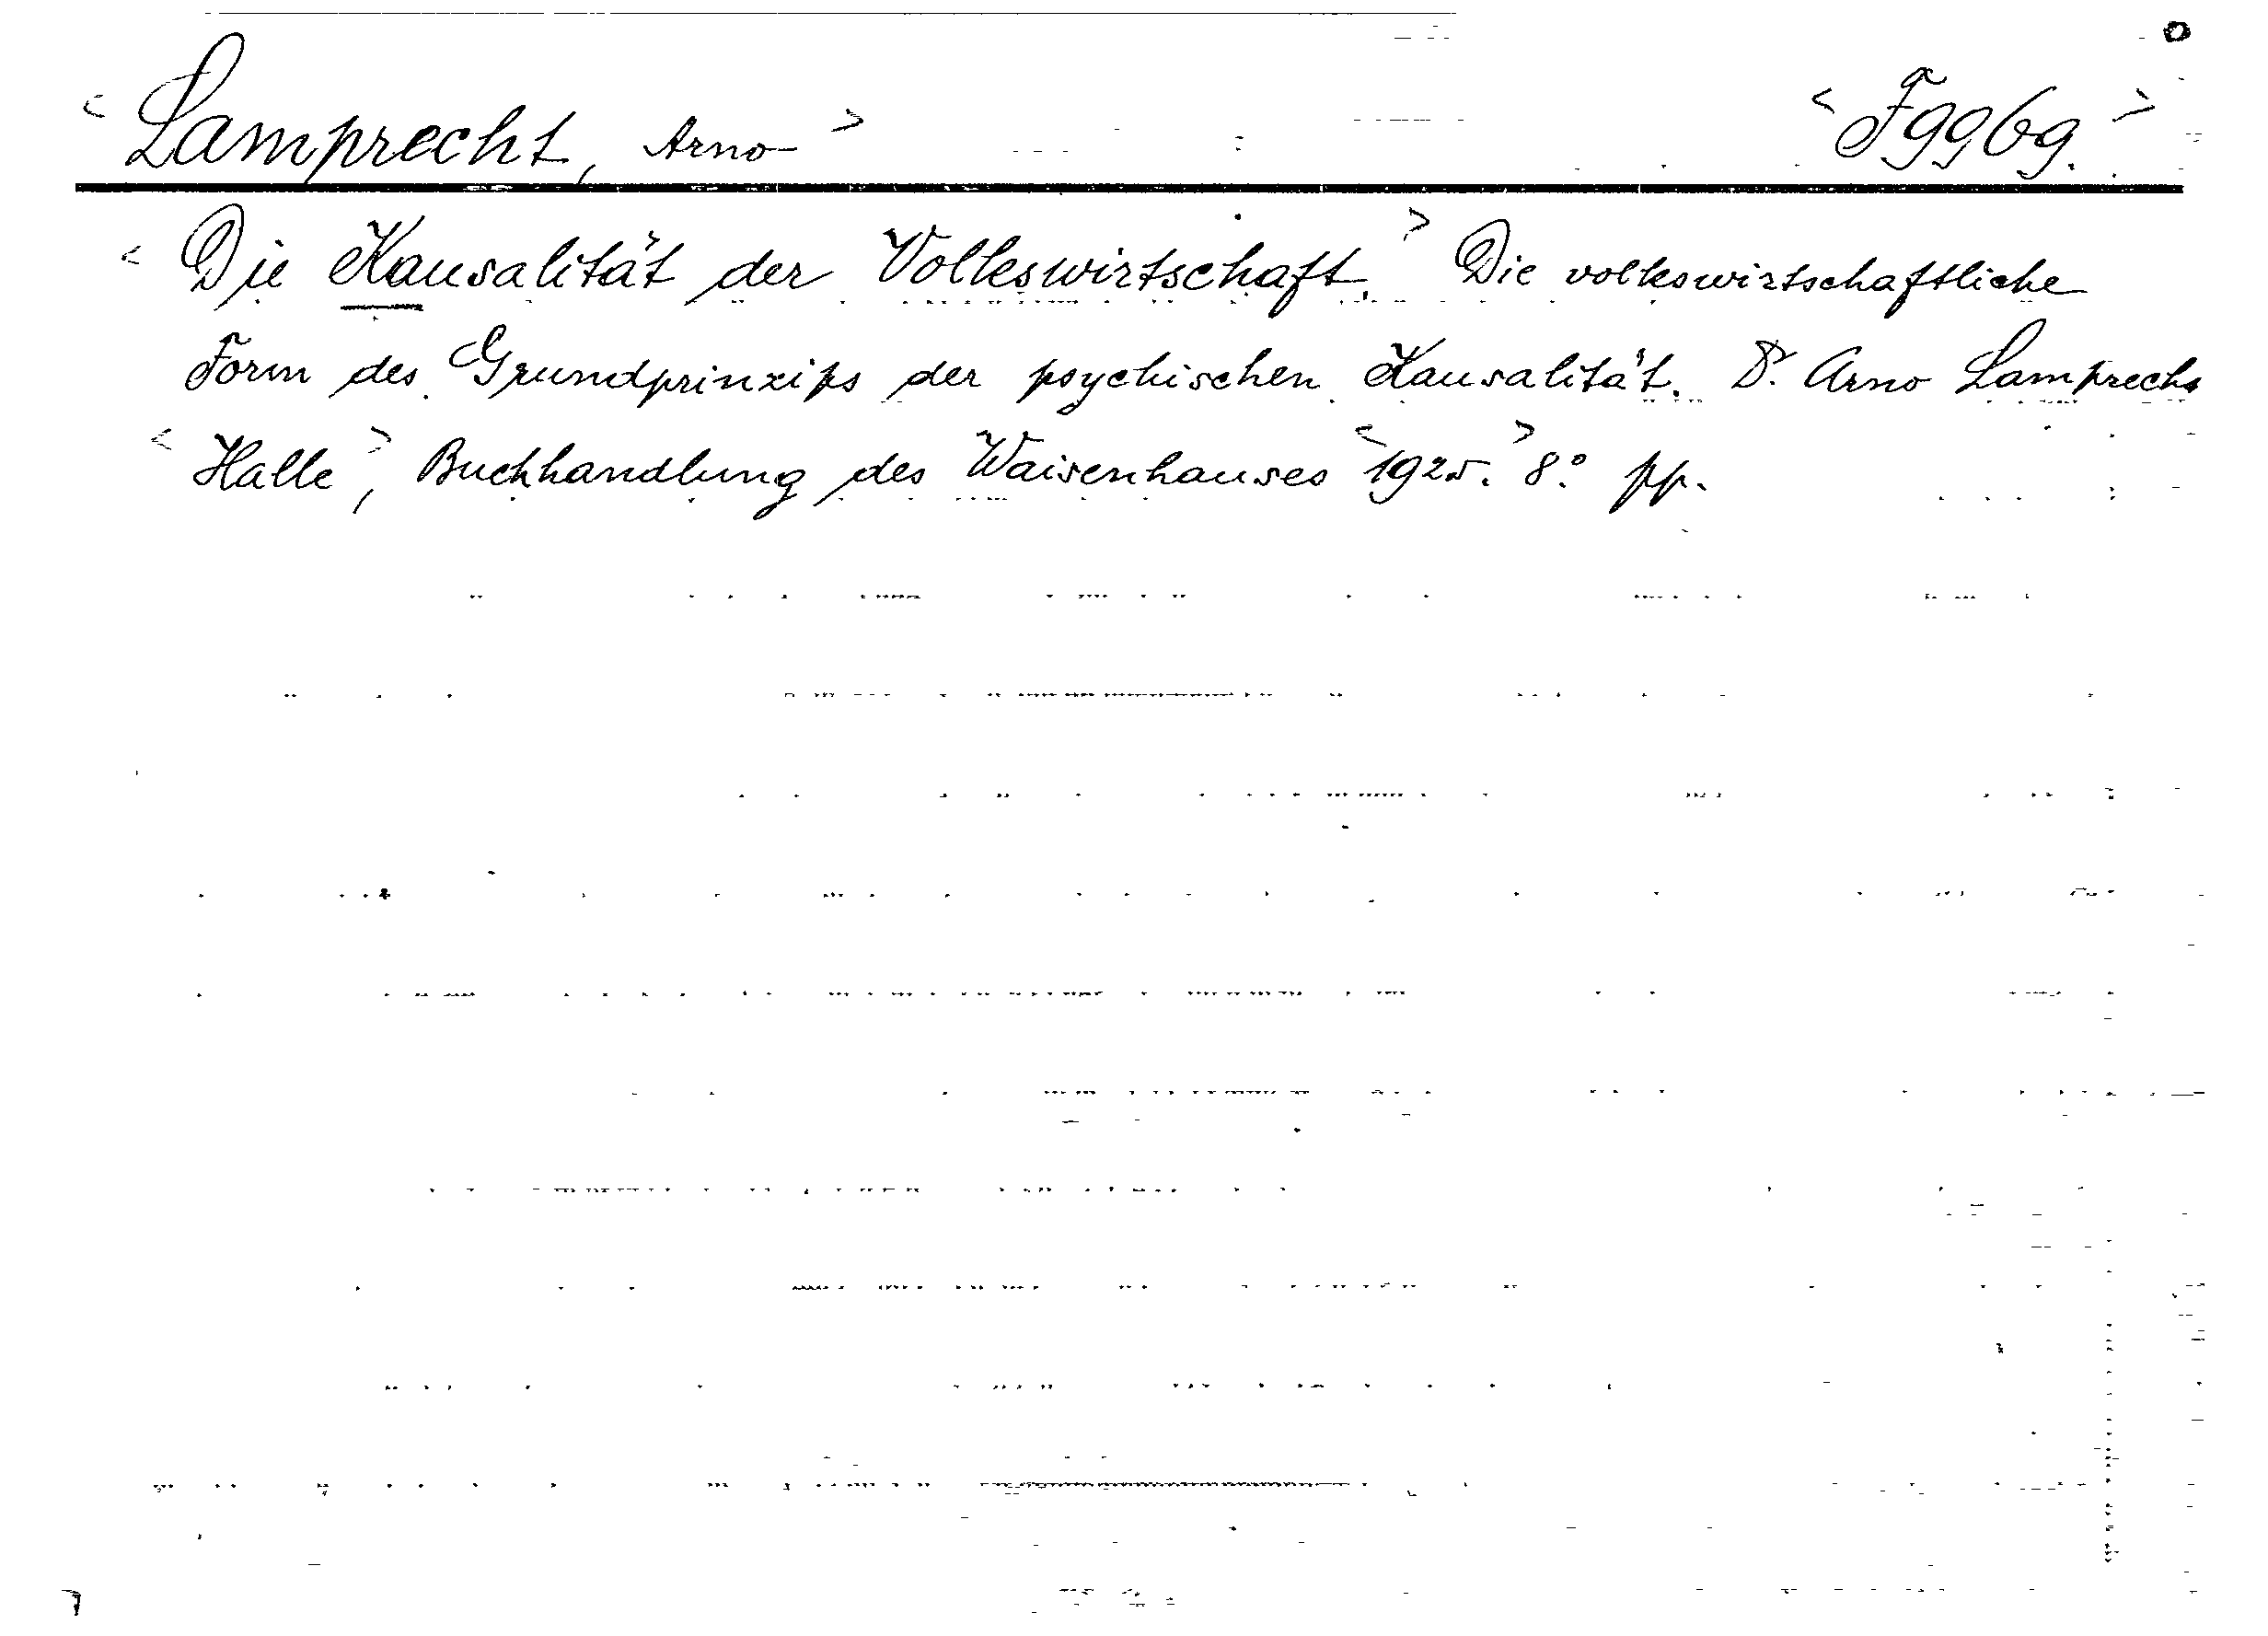 <Lamprecht, Arno> <F9969.>
<Die Kausalität der Volkswirtschaft.> Die volkswirtschaftliche
Form des Grundprinzips der psychischen Kausalität. Dr. Arno Lamprecht
<Halle>, Buchhandlung des Waisenhauses <1925.> 8° pp.